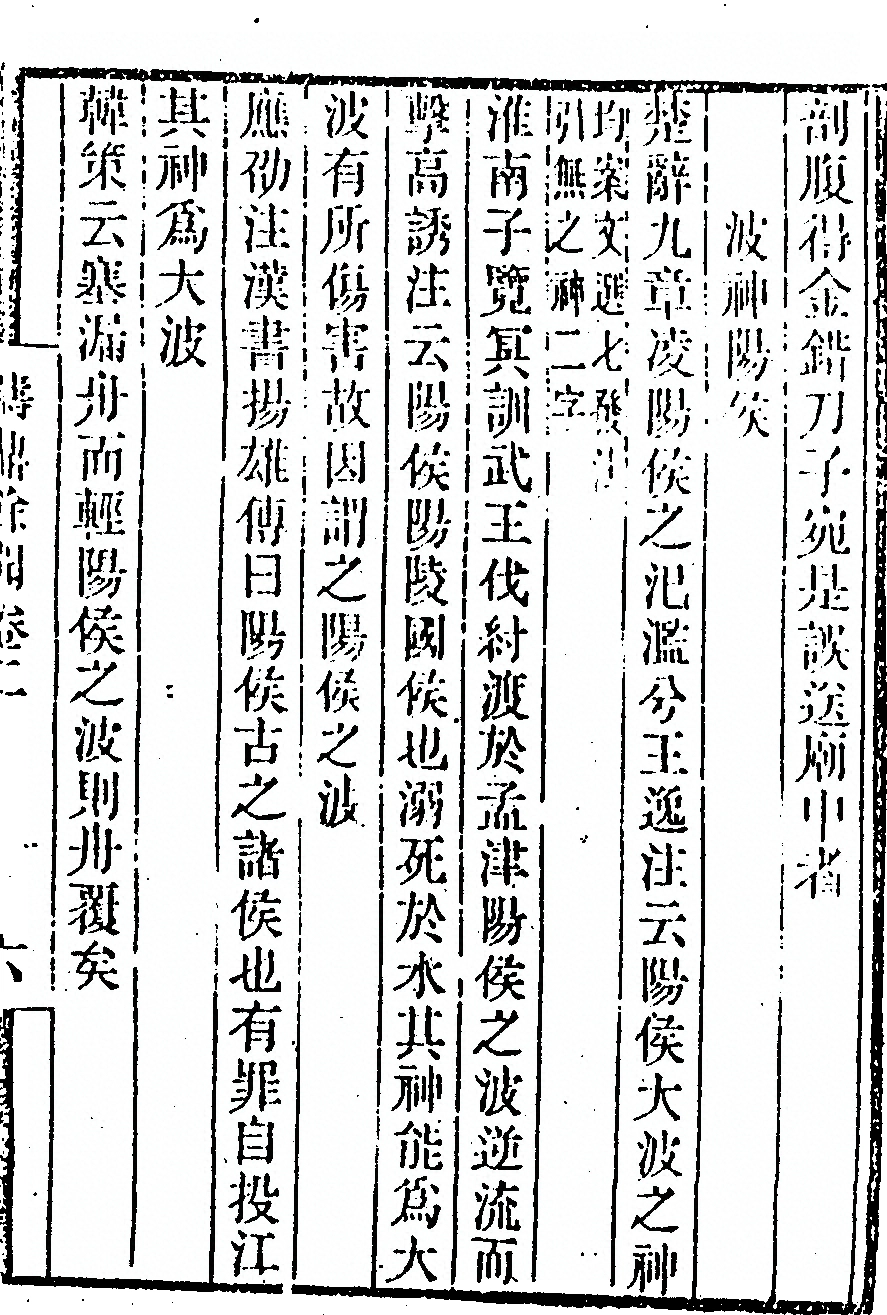 剖腹得金錯刀子宛是誤送廟中者
波神陽侯
楚辭九章凌陽侯之氾濫兮王逸注云陽侯大波之神
均案文選七發注
引無之神二字
淮南子覽冥訓武王伐紂渡於孟津陽侯之波逆流而
擊高誘注云陽侯陽陵國侯也溺死於水其神能爲大
波有所傷害故因謂之陽侯之波
應劭注漢書揚雄傳曰陽侯古之諸侯也有罪自投江
其神爲大波
韓策云塞漏舟而輕陽侯之波則舟覆矣
卷二
六